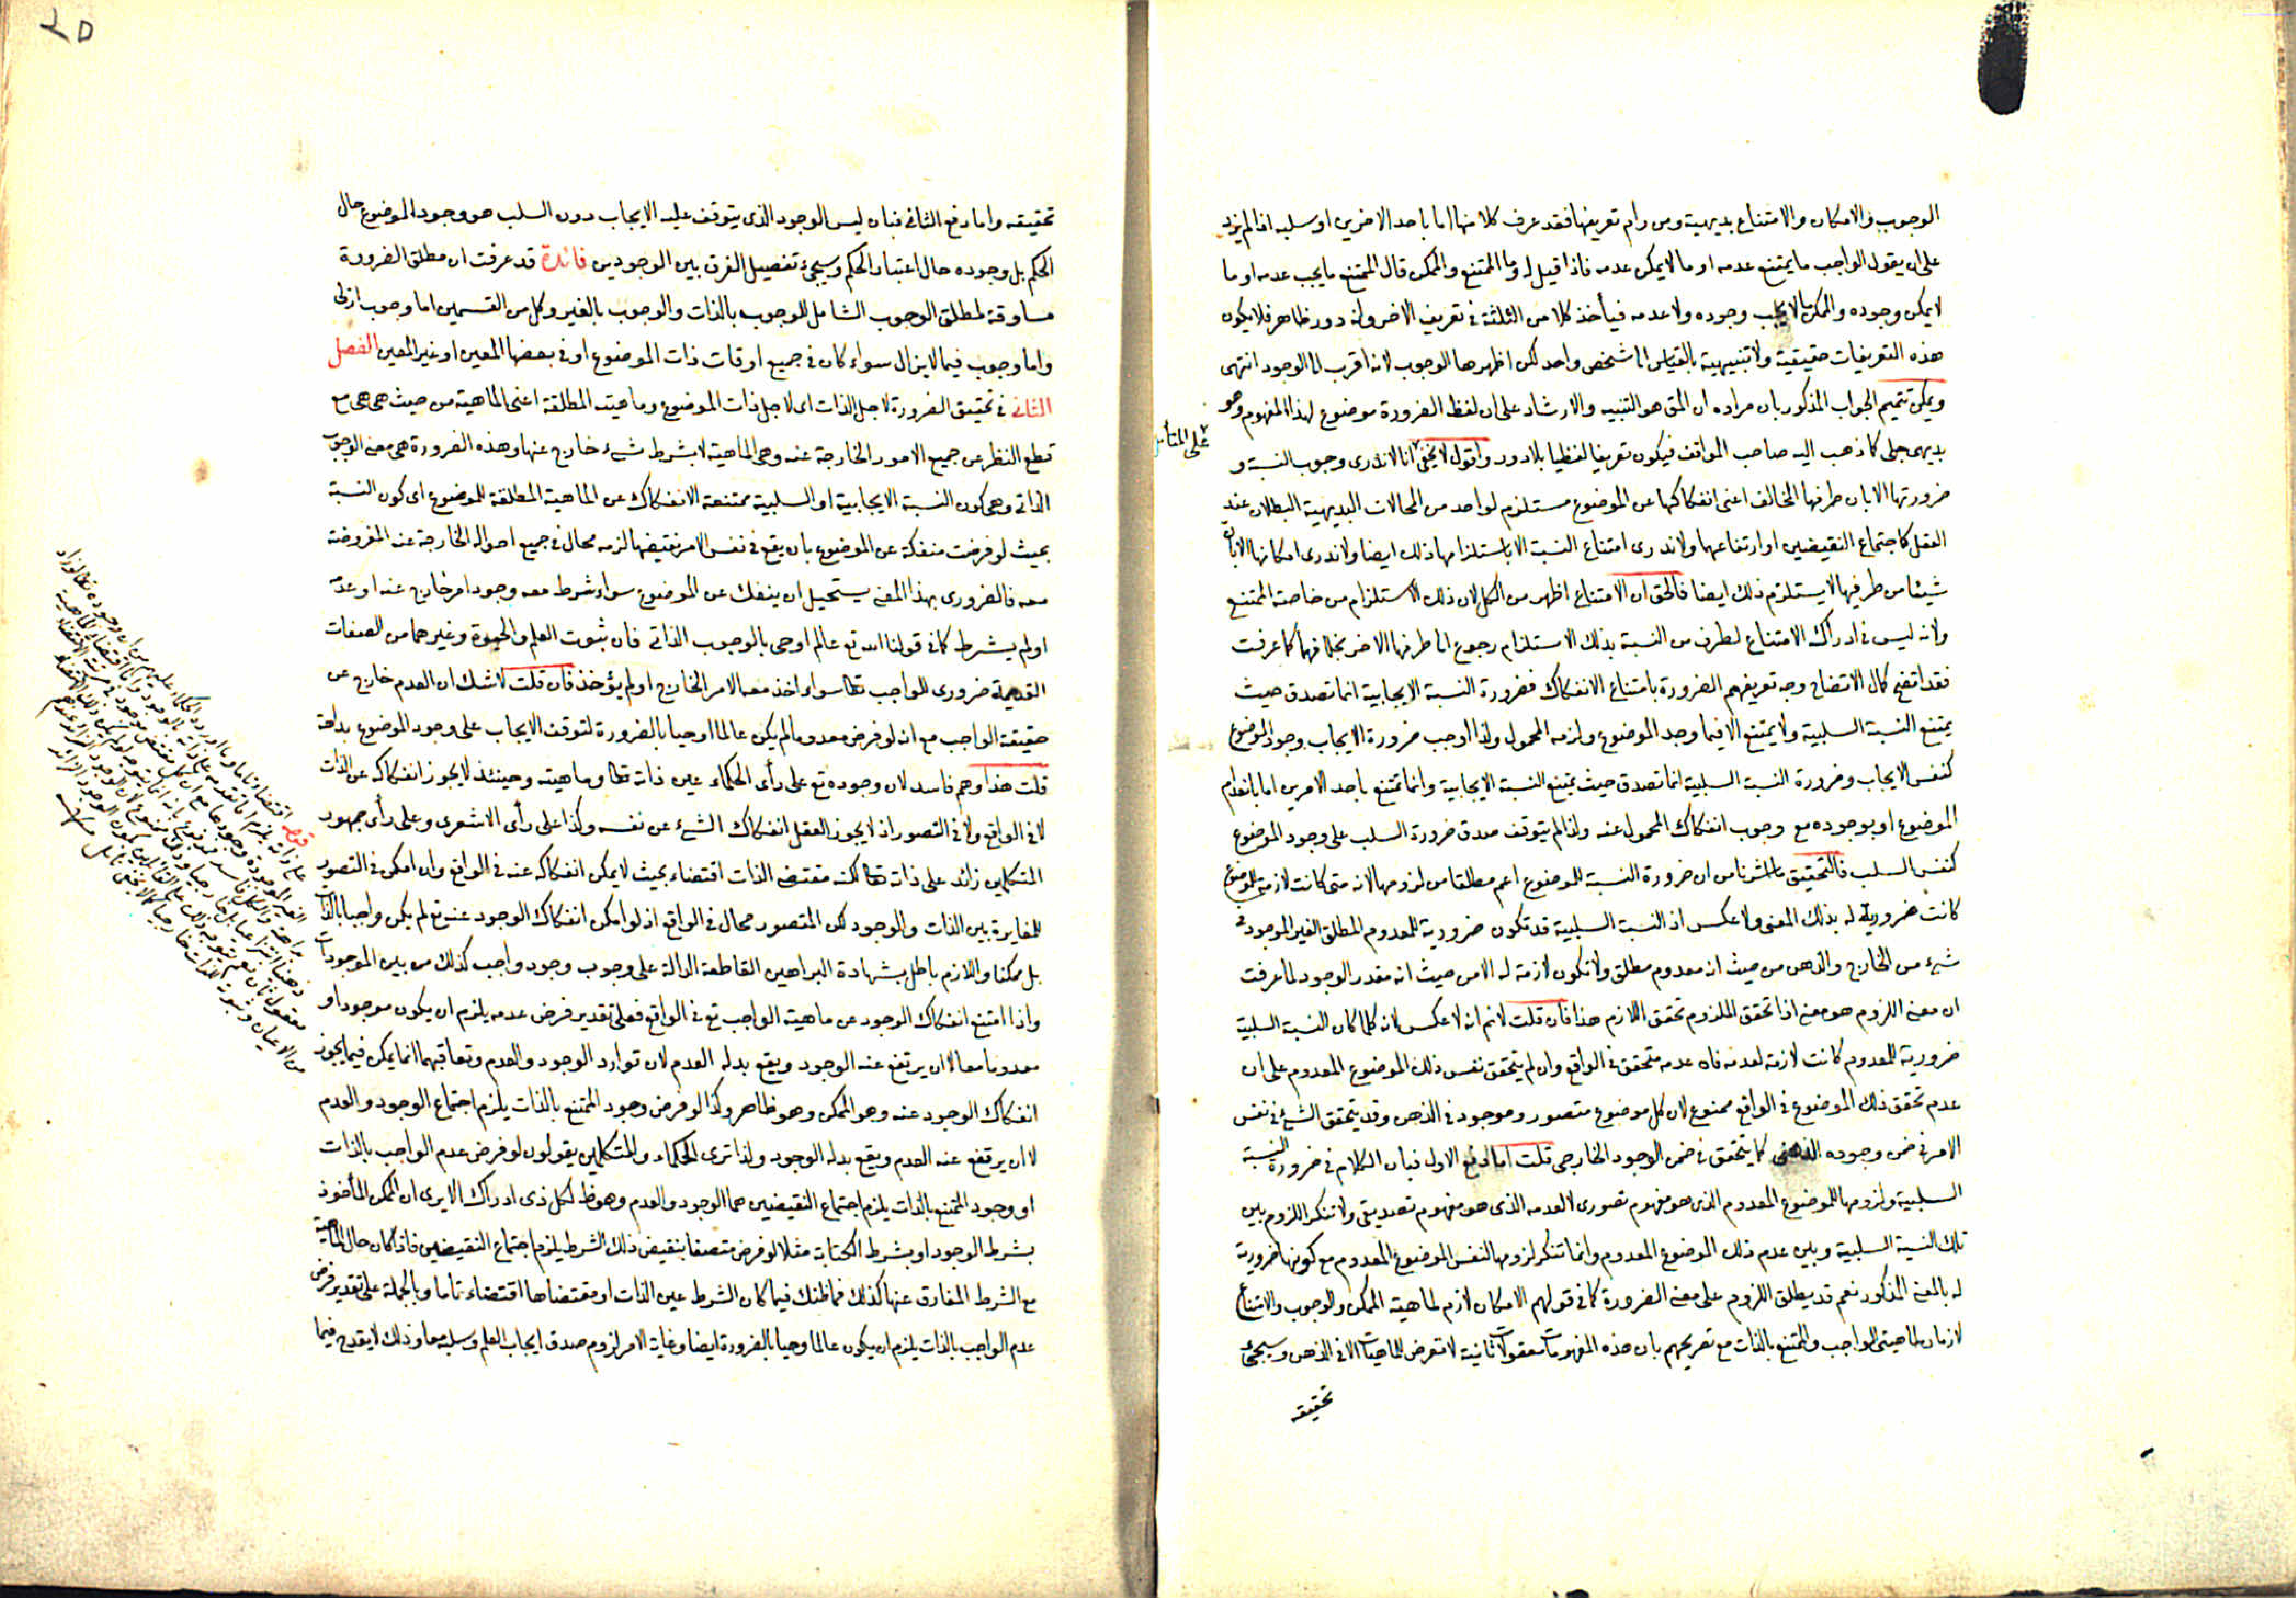 الوجوب والامكان والامتناع بديهية ومن رام تعريفها فقد عرف كلا منها اما باحد الاخرين او سلبه اذ لم يزد
على ان يقول الواجب ما يمتنع عدمه او ما لا يمكن عدمه فاذا قيل له وما الممتنع والممكن قال الممتنع ما يجب عدمه او ما
لا يمكن وجوده والممكن ما لا يجب وجوده ولا عدمه فيأخذ كلا من الثلثة في تعريف الاخر وانه دور ظاهر فلا يكون
هذه التعريفات حقيقية ولا تنبيهية بالقياس الى شخص واحد لكن اظهرها الوجوب لانه اقرب الى الوجود انتهى
ويمكن تتميم الجواب المذكور بان مراده ان المق هو التنبيه والارشاد على ان لفظ الضرورة موضوع لهذا المفهوم وهو
بديهى جلى كما ذهب اليه صاحب المواقف فيكون تعريفا لفظيا بلا دور واقول لا يخفى انا لا ندرى وجوب النسبة و
على المتأمل
ضرورتها الا بان طرفها المخالف اعنى انفكاكها عن الموضوع مستلزم لواحد من المحالات البديهية البطلان عند
العقل كاجتماع النقيضين او ارتفاعهما ولا ندرى امتناع النسبة الا باستلزامها ذلك ايضا ولا ندرى امكانها الا بان
شيئا من طرفيها لا يستلزم ذلك ايضا فالحق ان الامتناع اظهر من الكل لان ذلك الاستلزام من خاصة الممتنع
ولانه ليس في ادراك الامتناع لطرف من النسبة بذلك الاستلزام رجوع الى طرفها الاخر بخلافهما كما عرفت
فقد اتضح كمال الاتضاح وجه تعريفهم الضرورة بامتناع الانفكاك فضرورة النسبة الايجابية انما تصدق حيث
يمتنع النسبة السلبية ولا يمتنع الا فيما وجد الموضوع ولزمه المحمول ولذا اوجب ضرورة الايجاب وجود الموضوع
كنفس الايجاب وضرورة النسبة السلبية انما تصدق حيث يمتنع النسبة الايجابية وانما تمتنع باحد الامرين اما بانعدام
الموضوع او بوجوده مع وجوب انفكاك المحمول عنه ولذا لم يتوقف صدق ضرورة السلب على وجود الموضوع
كنفس السلب فالتحقيق ما اشرنا من ان ضرورة النسبة للموضوع اعم مطلقا من لزومها لانه متى كانت لازمة للموضوع
كانت ضرورية له بذلك المعنى ولا عكس اذ النسبة السلبية قد تكون ضرورية للمعدوم المطلق الغير الموجود في
شىء من الخارج والذهن من حيث انه معدوم مطلق ولا تكون لازمة له الا من حيث انه مقدر الوجود لما عرفت
ان معنى اللزوم هو معنى اذا تحقق الملزوم تحقق اللازم هذا فان قلت لانم انه لا عكس لانه كلما كان النسبة السلبية
ضرورية للمعدوم كانت لازمة لعدمه فان عدمه متحقق في الواقع وان لم يتحقق نفس ذلك الموضوع المعدوم على ان
عدم تحقق ذلك الموضوع في الواقع ممنوع لان كل موضوع متصور وموجود في الذهن وقد يتحقق الشئ في نفس
الامر في ضمن وجوده الذهنى كما يتحقق في ضمن الوجود الخارجى قلت اما دفع الاول فبان الكلام في ضرورة النسبة
السلبية ولزومها للموضوع المعدوم الذى هو مفهوم تصورى لا لعدمه الذى هو مفهوم تصديقى ولا ننكر اللزوم بين
تلك النسبة السلبية وبين عدم ذلك الموضوع المعدوم وانما ننكر لزومها لنفس الموضوع المعدوم مع كونها ضرورية
له بالمعنى المذكور نعم قد يطلق اللزوم على معنى الضرورة كما في قولهم الامكان لازم لماهية الممكن والوجوب والامتناع
لازمان لماهيتى الواجب والممتنع بالذات مع تصريحهم بان هذه المفهومات معقولات ثانية لا تعرض للماهيات الا في الذهن وسيجئ
تحقيقه
تحقيقه واما دفع الثانى فبان ليس الوجود الذى يتوقف عليه الايجاب دون السلب هو وجود الموضوع حال
الحكم بل وجوده حال اعتبار الحكم وسيجئ تفصيل الفرق بين الوجودين فائدة قد عرفت ان مطلق الضرورة
مساوقة لمطلق الوجوب الشامل للوجوب بالذات والوجوب بالغير وكل من القسمين اما وجوب ازلى
واما وجوب فيما لا يزال سواء كان في جميع اوقات ذات الموضوع او في بعضها المعين او غير المعين الفصل
الثانى في تحقيق الضرورة لاجل الذات اى لاجل ذات الموضوع وماهيته المطلقة اعنى الماهية من حيث هى هى مع
قطع النظر عن جميع الامور الخارجة عنه وهى الماهية لا بشرط شىء خارج عنها وهذه الضرورة هى معنى الوجوب
الذاتى وهى كون النسبة الايجابية او السلبية ممتنعة الانفكاك عن الماهية المطلقة للموضوع اى كون النسبة
بحيث لو فرضت منفكة عن الموضوع بان يقع في نفس الامر نقيضها لزمه محال في جميع احواله الخارجة عنه المفروضة
معه فالضرورى بهذا المعنى يستحيل ان ينفك عن الموضوع سواء شرط معه وجود امر خارج عنه او عدمه
او لم يشرط كما في قولنا الله تع عالم او حى بالوجوب الذاتى فان ثبوت العلم والحيوة وغيرهما من الصفات
القديمة ضرورى للواجب تعا سواء اخذ معه الامر الخارج او لم يؤخذ فان قلت لا شك ان العدم خارج عن
حقيقة الواجب مع انه لو فرض معدوما لم يكن عالما او حيا بالضرورة لتوقف الايجاب على وجود الموضوع بداهة
قلت هذا وهم فاسد لان وجوده تع على رأى الحكماء عين ذاته تعا وماهيته وحينئذ لا يجوز انفكاكه عن الذات
لا في الواقع ولا في التصور اذ لا يجوز العقل انفكاك الشىء عن نفسه وكذا على رأى الاشعرى وعلى رأى جمهور
المتكلمين زائد على ذاته تعا لكنه مقتضى الذات اقتضاء بحيث لا يمكن انفكاكه عنه في الواقع وان امكن في التصور
للمغايرة بين الذات والوجود لكن المتصور محال في الواقع اذ لو امكن انفكاك الوجود عنه تع لم يكن واجبا بالذات
بل ممكنا واللازم باطل بشهادة البراهين القاطعة الدالة على وجوب وجود واجب كذلك من بين الموجودات
واذا امتنع انفكاك الوجود عن ماهية الواجب تع في الواقع فعلى تقدير فرض عدمه يلزم ان يكون موجودا و
معدوما معا لا ان يرتفع عنه الوجود ويقع بدله العدم لان توارد الوجود والعدم وتعاقبهما انما يمكن فيما يجوز
انفكاك الوجود عنه وهو الممكن وهو ظاهر وكذا لو فرض وجود الممتنع بالذات يلزم اجتماع الوجود والعدم
لا ان يرتفع عنه العدم ويقع بدله الوجود ولذا ترى الحكماء والمتكلمين يقولون لو فرض عدم الواجب بالذات
او وجود الممتنع بالذات يلزم اجتماع النقيضين هما الوجود والعدم وهو ظ لكل ذى ادراك الا يرى ان الممكن المأخوذ
بشرط الوجود او بشرط الكتابة مثلا لو فرض متصفا بنقيض ذلك الشرط يلزم اجتماع النقيضين فاذا كان حال الماهية
مع الشرط المفارق عنها كذلك فما ظنك فيما كان الشرط عين الذات او مقتضاها اقتضاء تاما وبالجملة على تقدير فرض
عدم الواجب بالذات يلزم ان يكون عالما وحيا بالضرورة ايضا وغاية الامر لزوم صدق ايجاب العلم وسلبه معا وذلك لا يقدح فيما